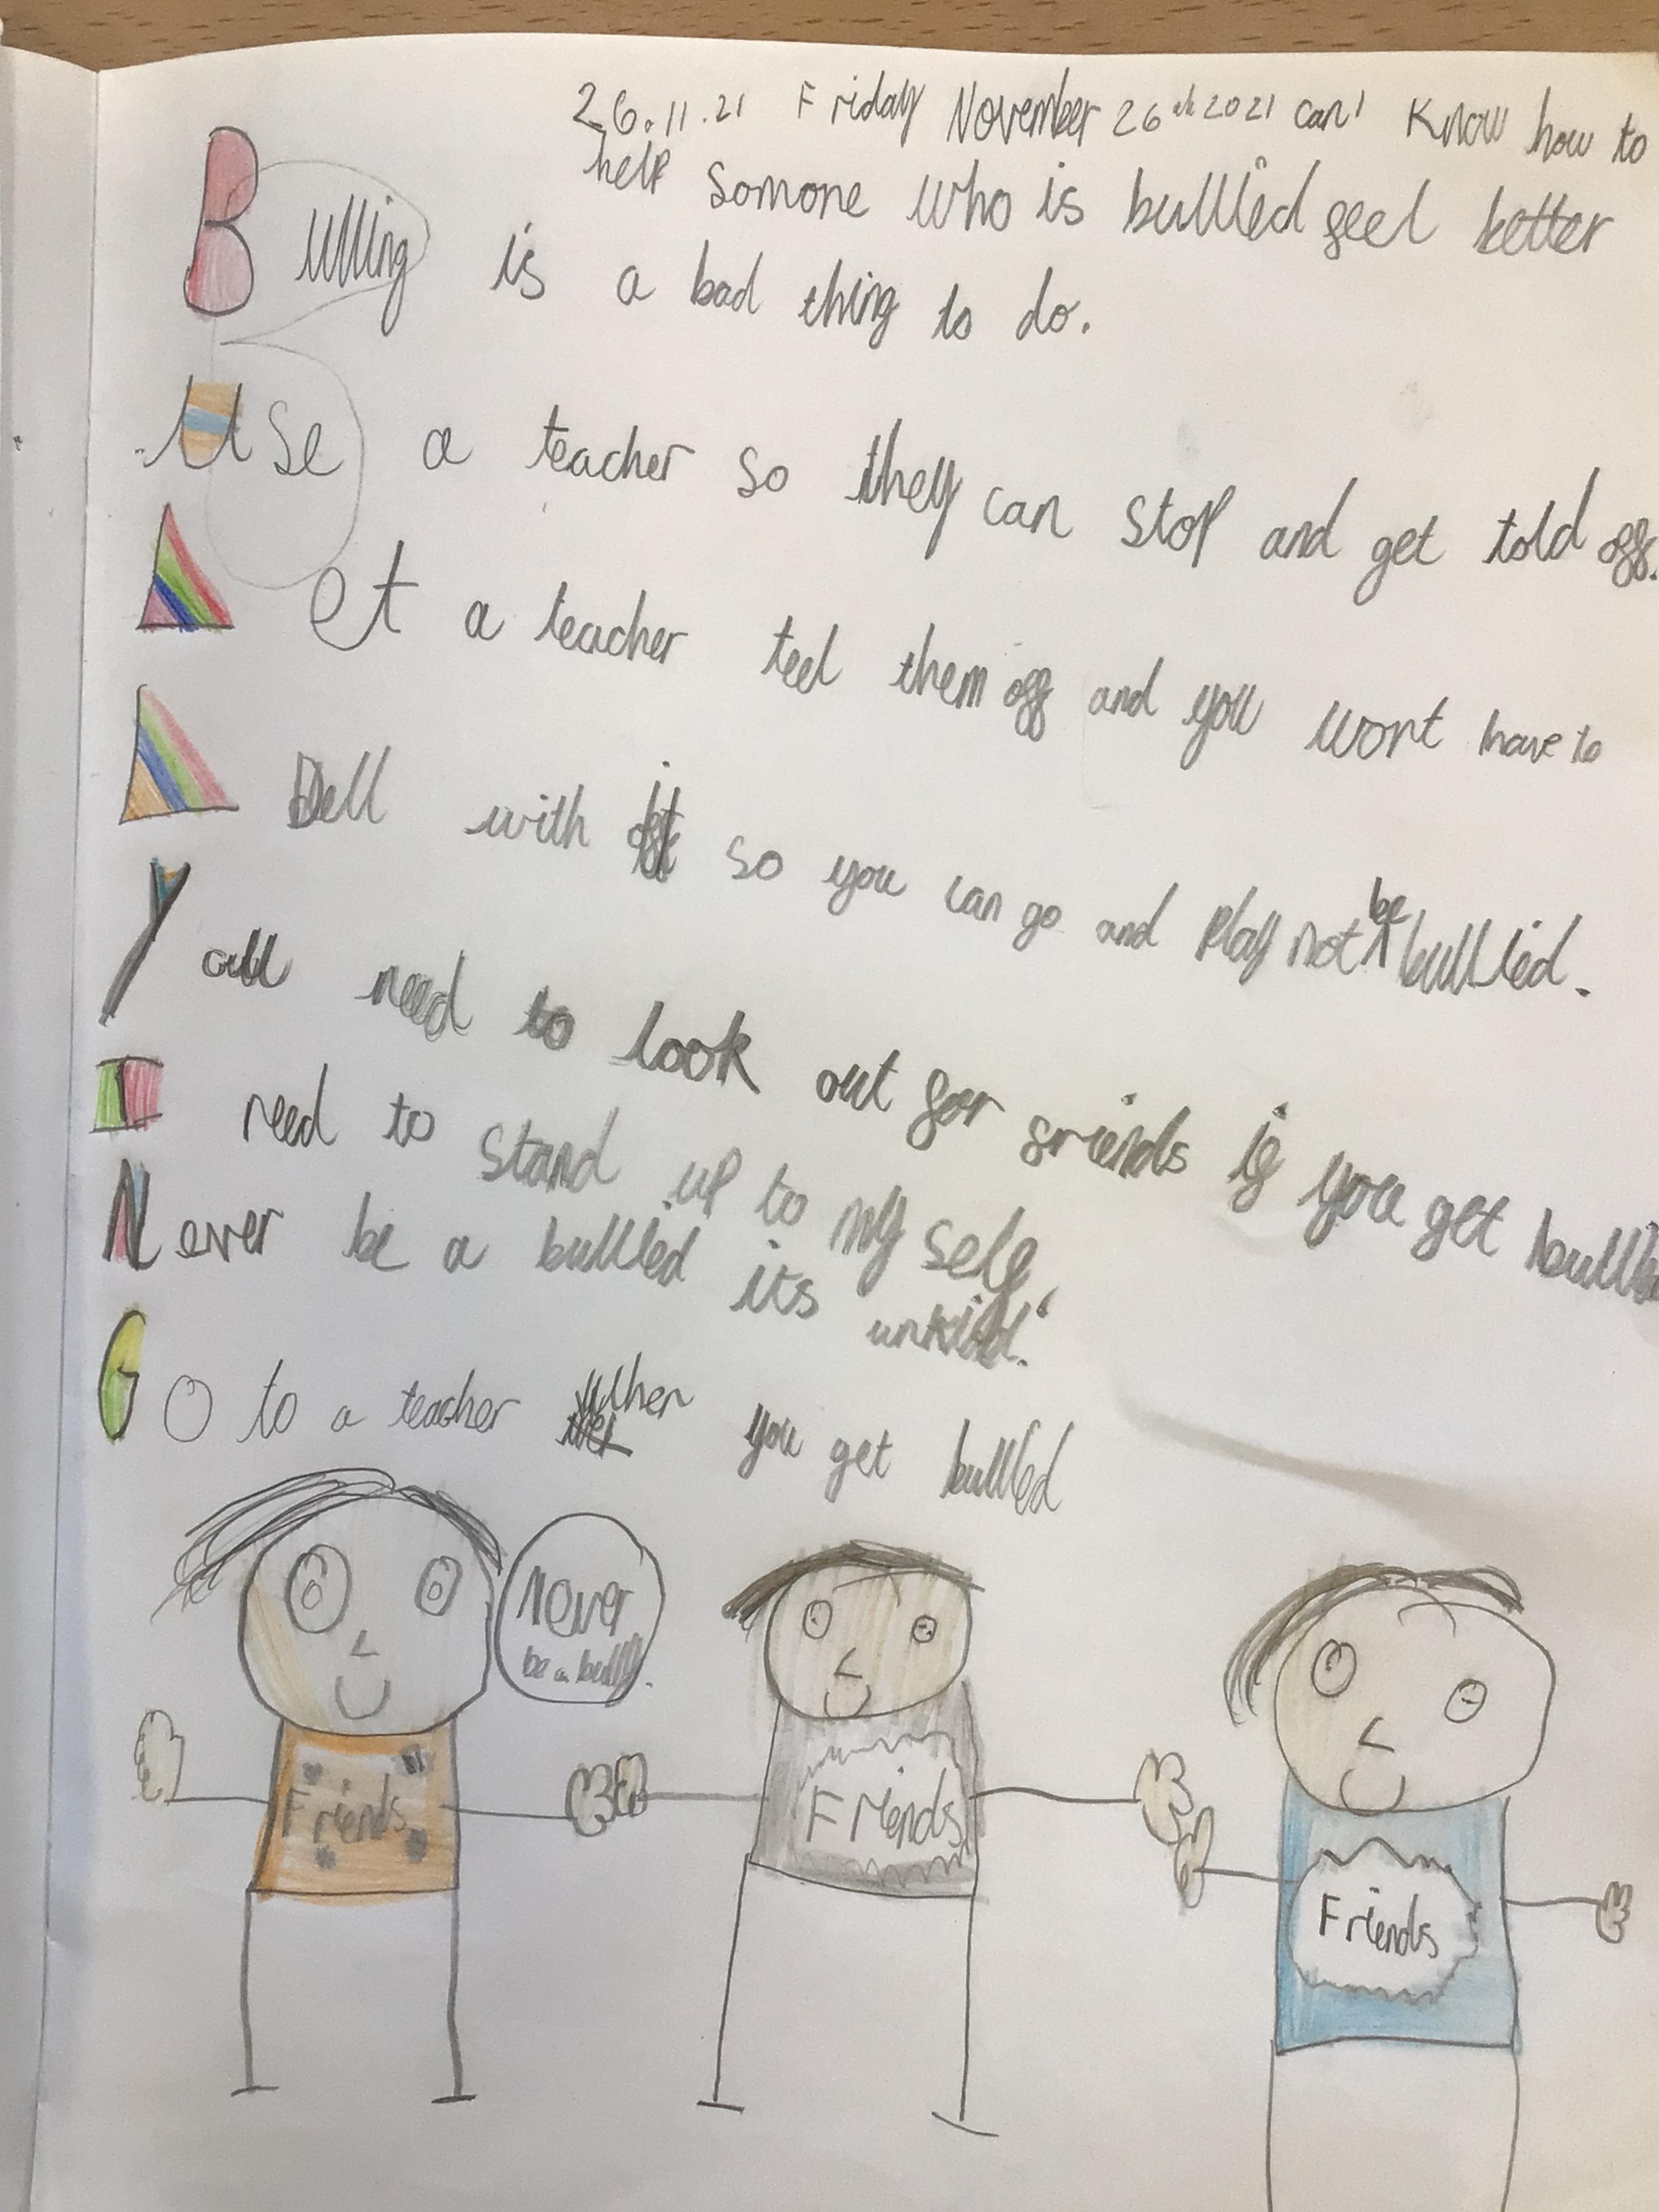 26.11.21 Friday November 26th 2021 can I Know how to
help somone who is bullied feel better
Bulling is a bad thing to do.
Use a teacher so they can stop and get told off.
Let a teacher teel them off and you wont have to
Dell with it so you can go and play not be bullied.
Y all need to look out for friends if you get
I need to stand up to my self.
Never be a bullied its unkind.
Go to a teacher when you get bullied
Never
be a bully.
Friends
Friends
Friends